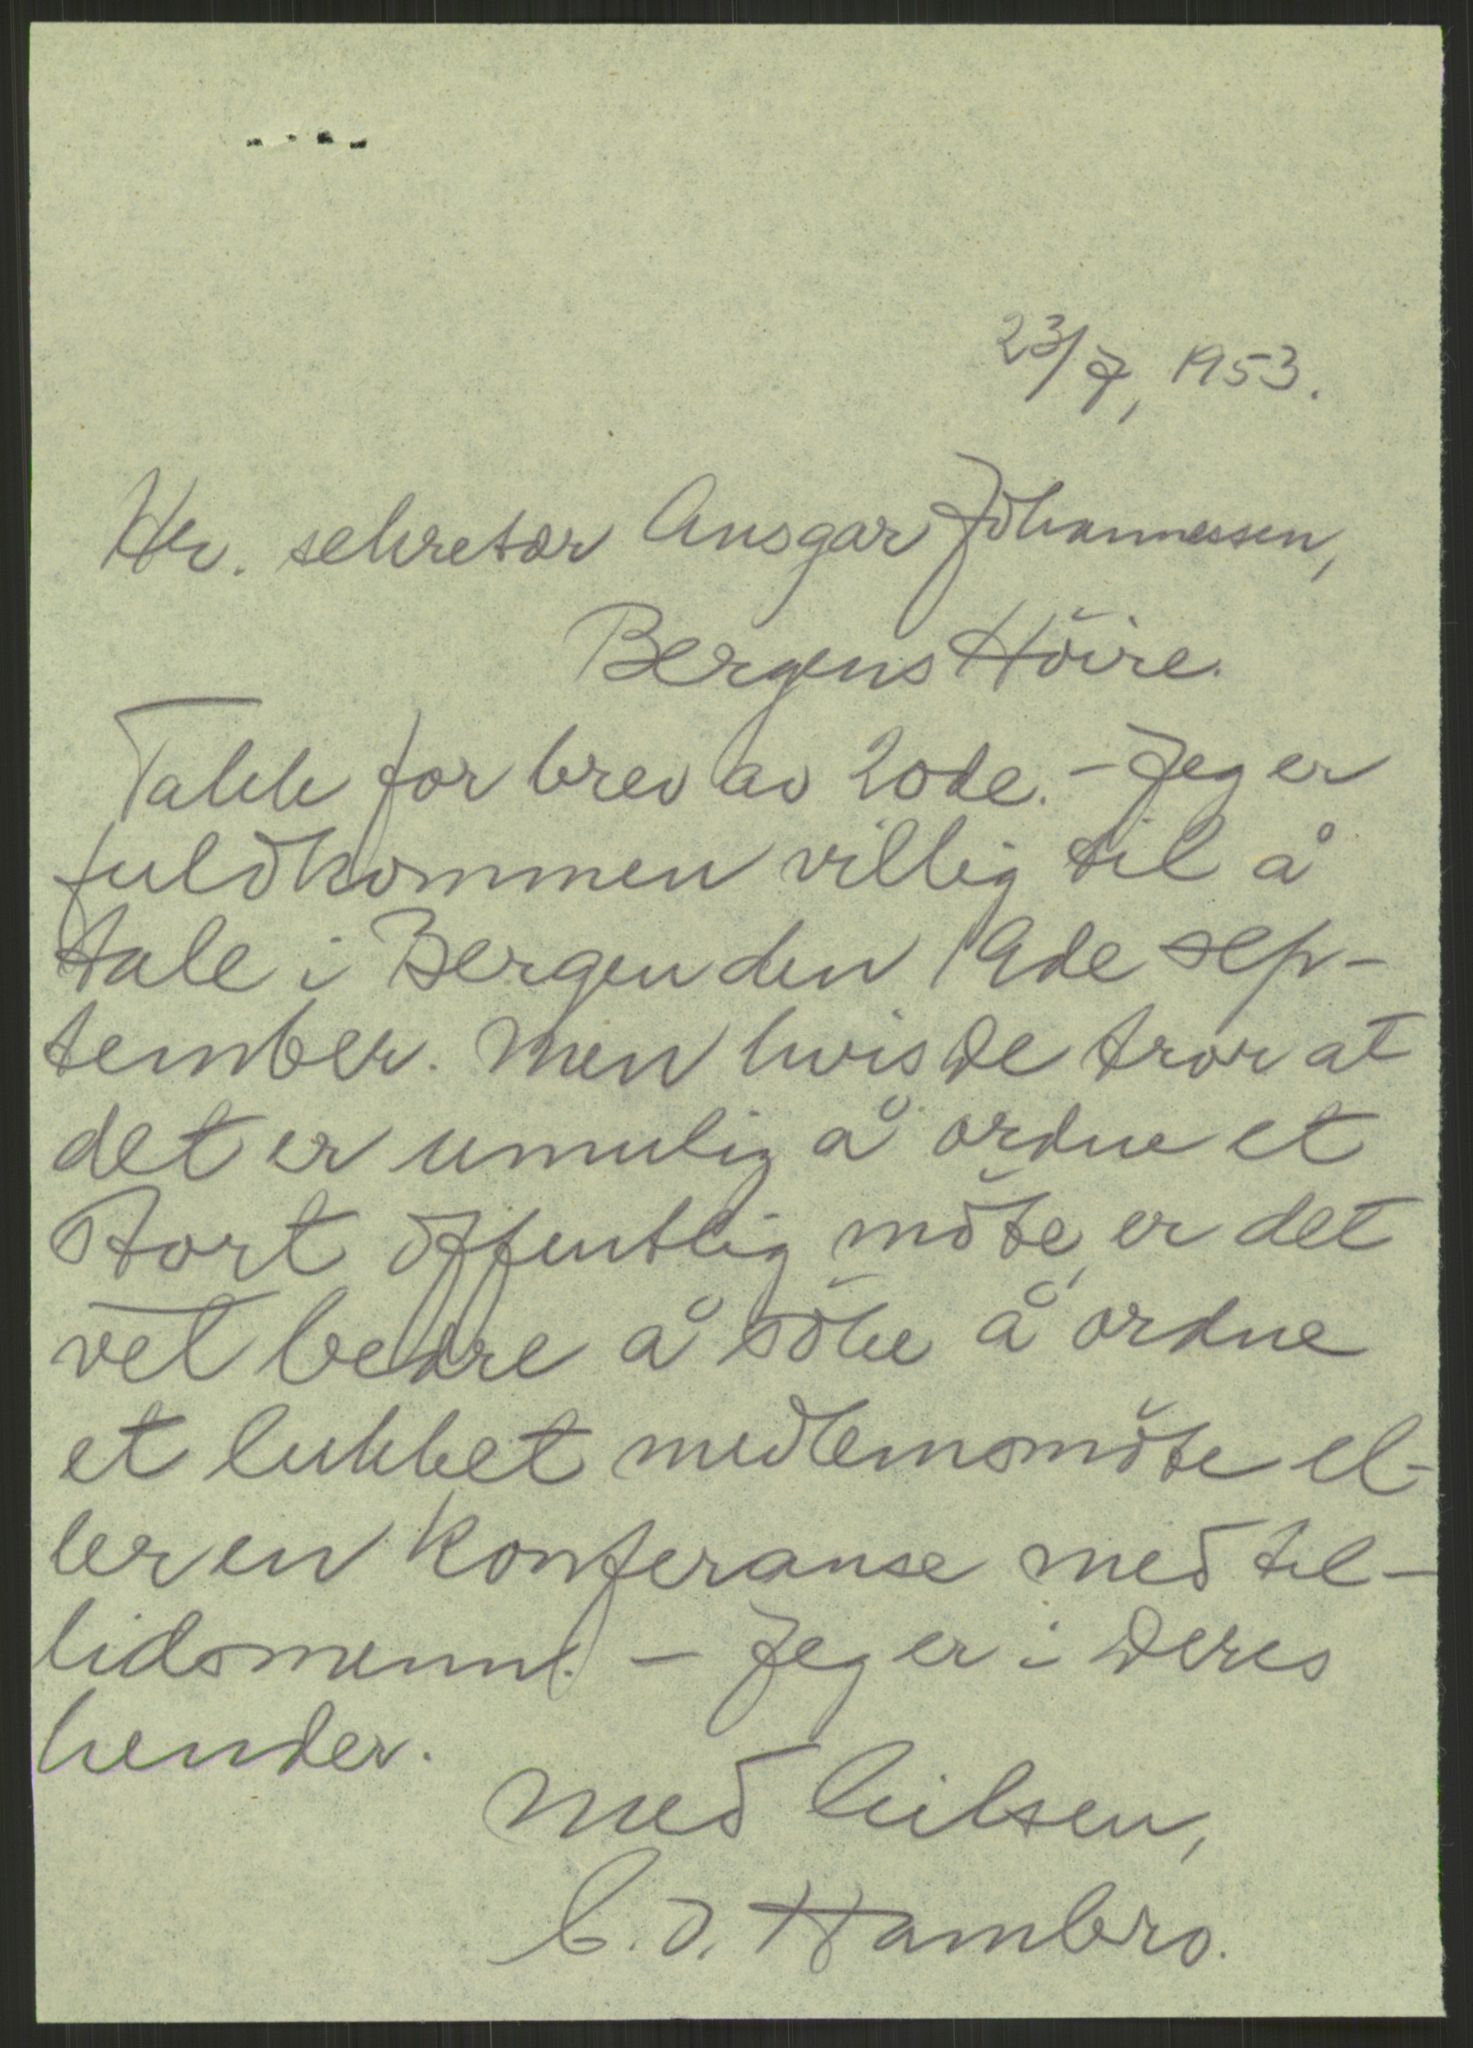 23/7, 1953.
Hr. sekretær Ansgar Johannessen,
Bergens Höire.
Takk for brev av 20de. – Jeg er
fuldkommen villig til å
tale i Bergen den 19de sep-
tember. Men hvis De tror at
det er umulig å ordne et
stort offentlig möte, er det
vel bedre å söke å ordne
et lukket medlemsmöte el-
ler en konferanse med til-
lidsmenn. – Jeg er i Deres
hender.
Med hilsen,
C. J. Hambro.